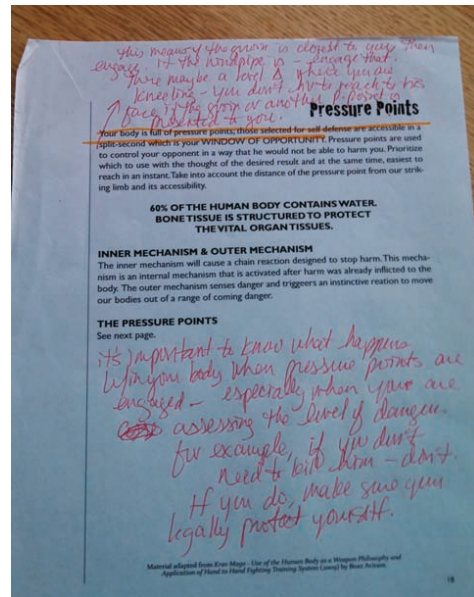 this means if the groin is closest to you then
engage. if the windpipe is - engage that.
There may be a level where you are
kneeling - you don't hv to reach to his
face if the groin or another P-Point is
presented to you.
Pressure Points
Your body is full of pressure points; those selected for self defense are accessible in a
split-second which is your WINDOW OF OPPORTUNITY. Pressure points are used
to control your opponent in a way that he would not be able to harm you. Prioritize
which to use with the thought of the desired result and at the same time, easiest to
reach in an instant. Take into account the distance of the pressure point from our strik-
ing limb and its accessibility.
60% OF THE HUMAN BODY CONTAINS WATER.
BONE TISSUE IS STRUCTURED TO PROTECT
THE VITAL ORGAN TISSUES.
INNER MECHANISM & OUTER MECHANISM
The inner mechanism will cause a chain reaction designed to stop harm. This mecha-
nism is an internal mechanism that is activated after harm was already inflicted to the
body. The outer mechanism senses danger and triggeers an instinctive reation to move
our bodies out of a range of coming danger.
THE PRESSURE POINTS
See next page.
it's important to know what happens
w/in your body when pressure points are
engaged - especially when you are
assessing the level of danger.
for example, if you don't
need to kill him - don't.
If you do, make sure you
legally protect yourself.
Material adapted from Krav Maga - Use of the Human Body as a Weapon Philosophy and
Application of Hand to Hand Fighting Training System (2009) by Boaz Aviram.